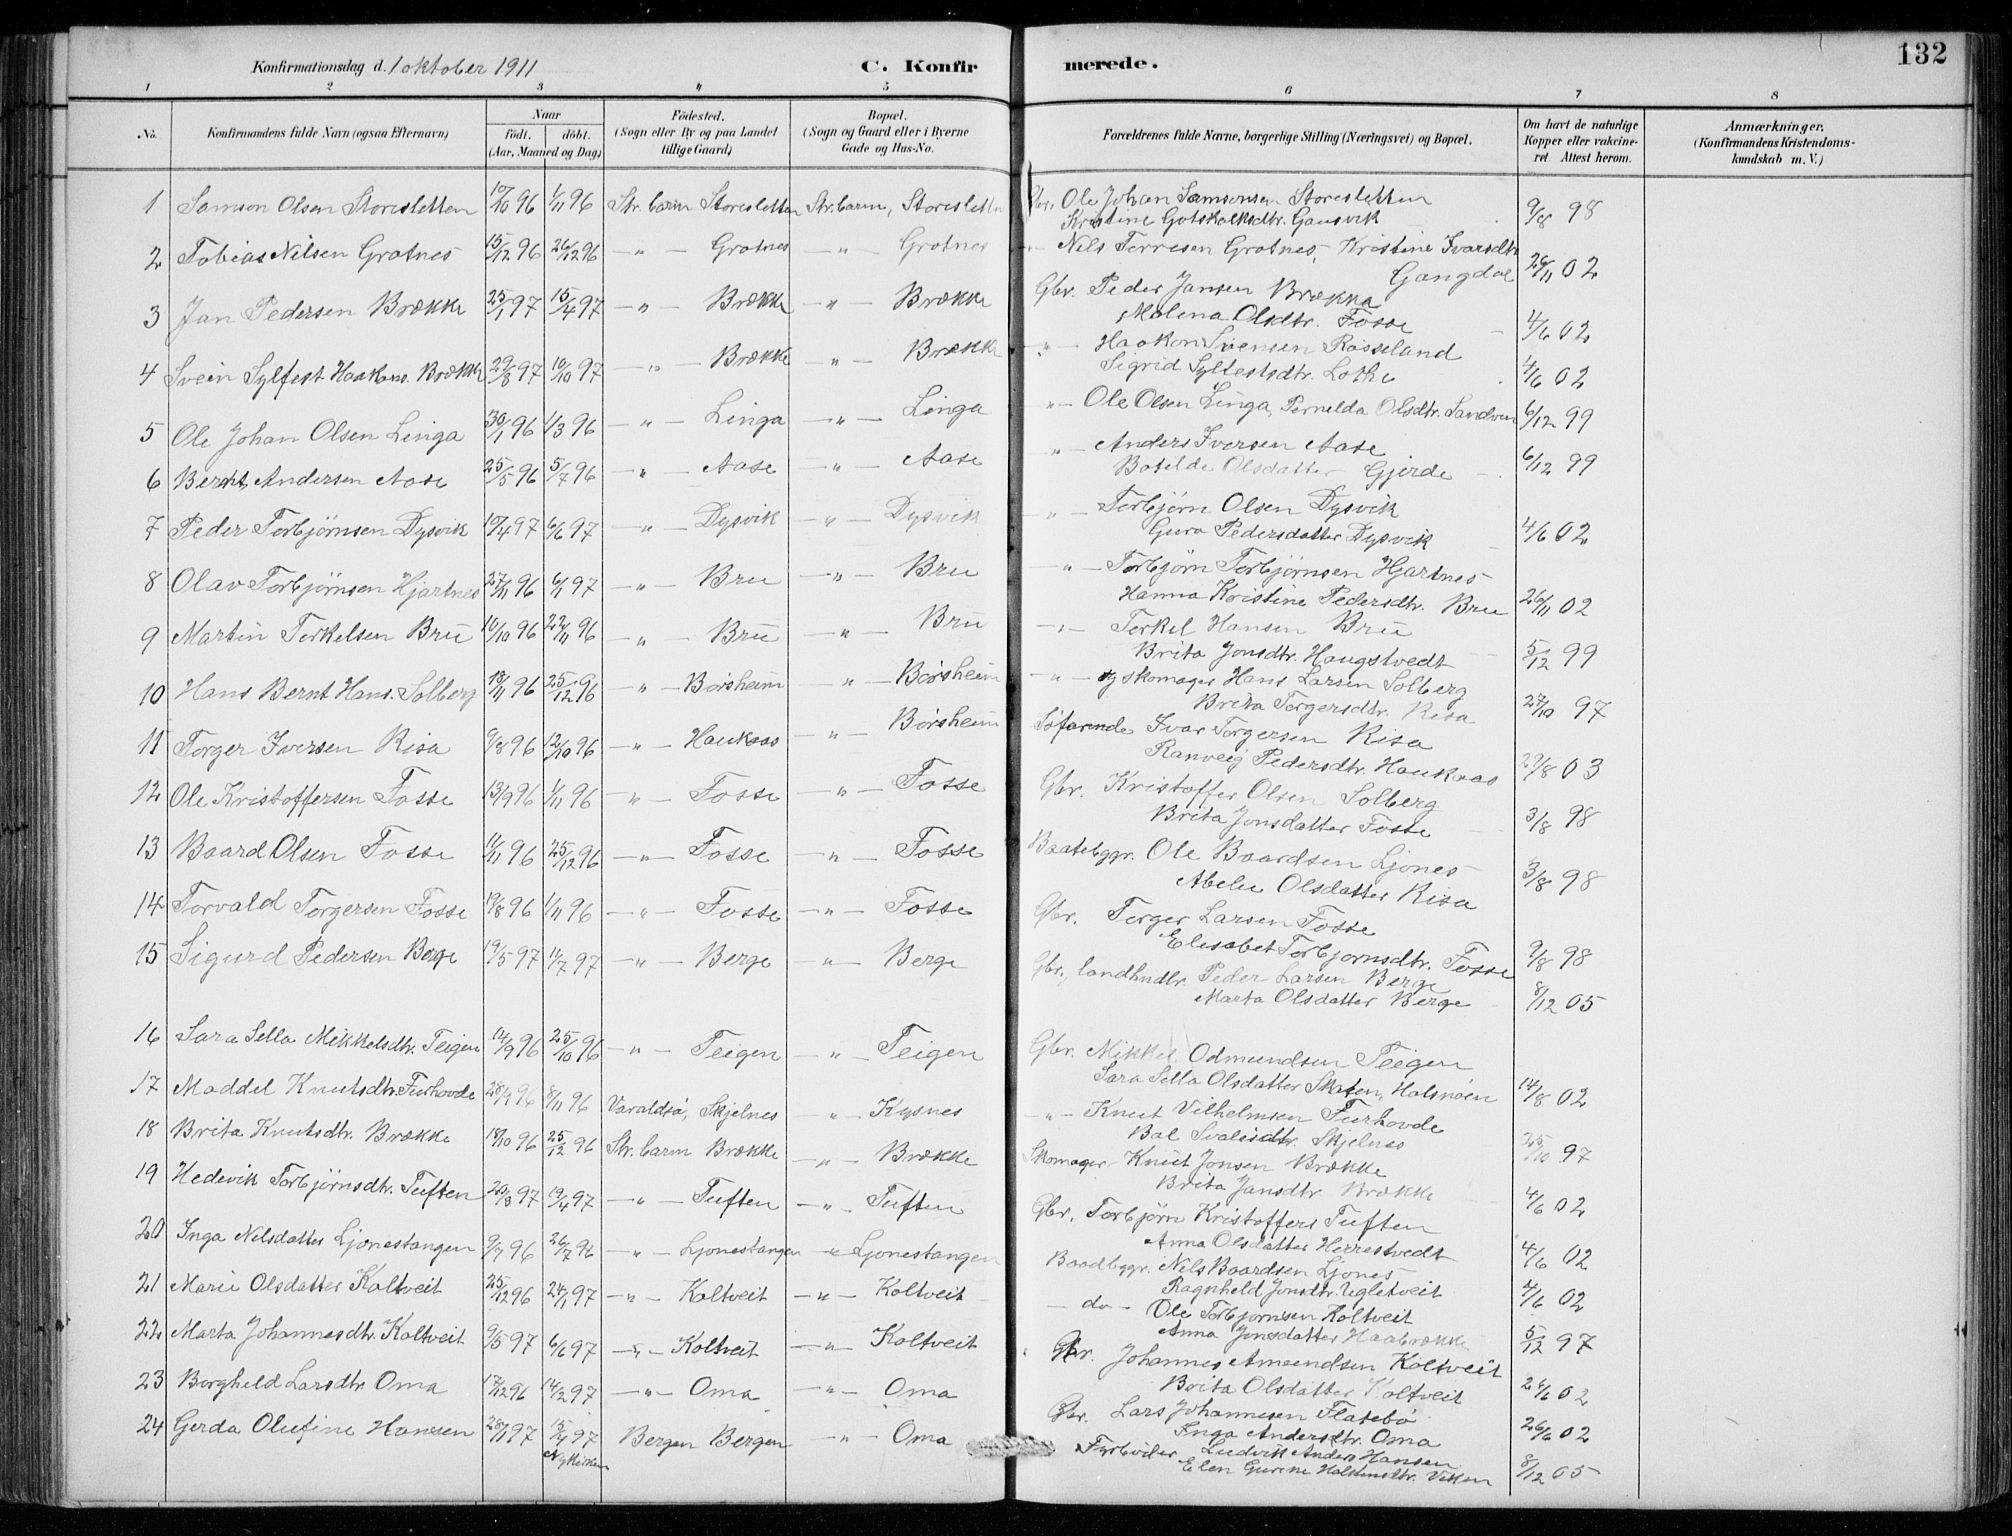 132
Konfirmationsdag d. 1 oktober 1911 C. Konfirmerede.
1 2 3 4 5 6 7 8
No. Konfirmandens fulde Navn (ogsaa Efternavn) Naar født. døbt. (Aar, Maaned og Dag) Fødested. (Sogn eller By og paa Landet tillige Gaard) Bopæl. (Sogn og Gaard eller i Byerne Gade og Hus-No. Forældrenes fulde Navne, borgerlige Stilling (Næringsvei) og Bopæl. Om havt de naturlige Kopper eller vakcineret. Attest herom. Anmærkninger. (Konfirmandens Kristendomskundskab m. V.)
1 Samson Olsen Storesletten 10/10 96 1/11 96 Str.barm Storesletten Str.barm, Storesletten Gbr. Ole Johan Samsonsen Storesletten
Kristine Gotskalksdtr. Gausvik 9/8 98
2 Tobias Nilsen Grotnes 15/12 96 26/12 96 —"— Grotnes —"— Grotnes —"— Nils Terresen Grotnes, Kristine Ivarsdtr
Gangdal 26/11 02
3 Jan Pedersen Brække 25/1 97 15/4 97 —"— Brække —"— Brække Gbr. Peder Jansen Brække
Malena Olsdtr. Fosse 4/6 02
4 Svein Sylfest Haakons. Brække 29/8 97 10/10 97 —"— Brække " Brække —"— Haakon Svensen Røsseland
Sigrid Sylfestsdtr. Lothe 4/6 02
5 Ole Johan Olsen Linga 30/1 96 1/3 96 —"— Linga —"— Linga "— Ole Olsen Linga, Pernelda Olsdtr. Sandven 6/12 99
6 Bernt Andersen Aase 25/5 96 5/7 96 —"— Aase —"— Aase "— Anders Iversen Aase
Botilde Olsdatter Gjerde 6/12 99
7 Peder Torbjørnsen Dysvik 10/4 97 6/6 97 —"— Dysvik —"— Dysvik —"— Torbjørn Olsen Dysvik
Guro Pedersdatter Dysvik 4/6 02
8 Olav Torbjørnsen Hjartnes 27/11 96 6/1 97 —"— Bru —"— Bru —"— Torbjørn Torbjørnsen Hjartnes
Hanna Kristine Pedersdtr. Bru 26/11 02
9 Martin Terkelsen Bru 10/10 96 22/11 96 —"— Bru —"— Bru —"— Terkel Hansen Bru
Brita Jonsdtr. Haugstvedt 5/12 99
10 Hans Bernt Hans. Solberg 18/11 96 25/12 96 —"— Børsheim —"— Børsheim —"— og skomager Hans Larsen Solberg
Brita Torgersdtr. Risa 27/10 97
11 Torger Iversen Risa 9/8 96 12/10 96 —"— Haukaas —"— Børsheim Søfarende Ivar Torgersen Risa
Ranveig Pedersdtr. Haukaas 29/8 03
12 Ole Kristoffersen Fosse 13/9 96 1/11 96 —"— Fosse —"— Fosse Gbr. Kristoffer Olsen Solberg
Brita Jonsdatter Fosse 3/8 98
13 Baard Olsen Fosse 11/11 96 25/12 96 —"— Fosse —"— Fosse Baatebggr. Ole Baardsen Ljones
Abelu Olsdatter Risa 3/8 98
14 Torvald Torgersen Fosse 19/8 96 1/11 96 —"— Fosse —"— Fosse Gbr. Torger Larsen Fosse
Elisabet Torbjørnsdtr. Fosse 9/8 98
15 Sigurd Pedersen Berge 19/5 97 11/7 97 —"— Berge —"— Berge Gbr., landhndlr. Peder Larsen Berge
Marta Olsdatter Berge 8/12 05
16 Sara Sella Mikkelsdtr. Teigen 14/9 96 25/10 96 —"— Teigen —"— Teigen Gbr. Mikkel Odmundsen Teigen
Sara Sella Olsdatter Skaten, Halsnøen 14/8 02
17 Maddel Knutsdtr. Furhovde 28/9 96 8/11 96 Varaldsø, Skjelnes " Kysnes —"— Knut Vilhelmsen Furhovde
Bal Skjelnes 25/10 97
18 Brita Knutsdtr. Brække 18/10 96 25/12 96 Str.barm Brække —"— Brække Skomager Knut Jonsen Brække
Brita Jansdtr. Brække 4/6 02
19 Hedevik Torbjørnsdtr. Tuften 20/3 97 19/4 97 —"— Tuften —"— Tuften Gbr. Torbjørn Kristoffers Tuften
Anna Olsdatter Herrestvedt 4/6 02
20 Inga Nilsdatter Ljonestangen 9/7 96 26/7 96 —"— Ljonestangen —"— Ljonestangen Baadbggr. Nils Baardsen Ljones
Ragnheld Jonsdtr. Ugletveit 4/6 02
21 Marie Olsdatter Koltveit 25/12 96 24/1 97 —"— Koltveit —"— Koltveit — do — Ole Torbjørnsen Koltveit
Anna Jonsdatter Haabrække 5/12 97
22 Marta Johannesdtr. Koltveit 9/5 97 6/6 97 —"— Koltveit —"— Koltveit Gbr. Johannes Amundsen Koltveit
Brita Olsdatter Koltveit 26/6 02
23 Borgheld Larsdtr. Oma 17/12 96 14/2 97 —"— Oma —"— Oma Gbr. Lars Johannesen Flatebø
Inga Andersdtr. Oma 26/6 02
24 Gerda Olufine Hansen 28/1 97 15/4 97 Nykirken Bergen Bergen —"— Oma Fyrbøder Ludvik Anders Hansen
Elen Gurine Halstensdtr. Viken 8/12 05